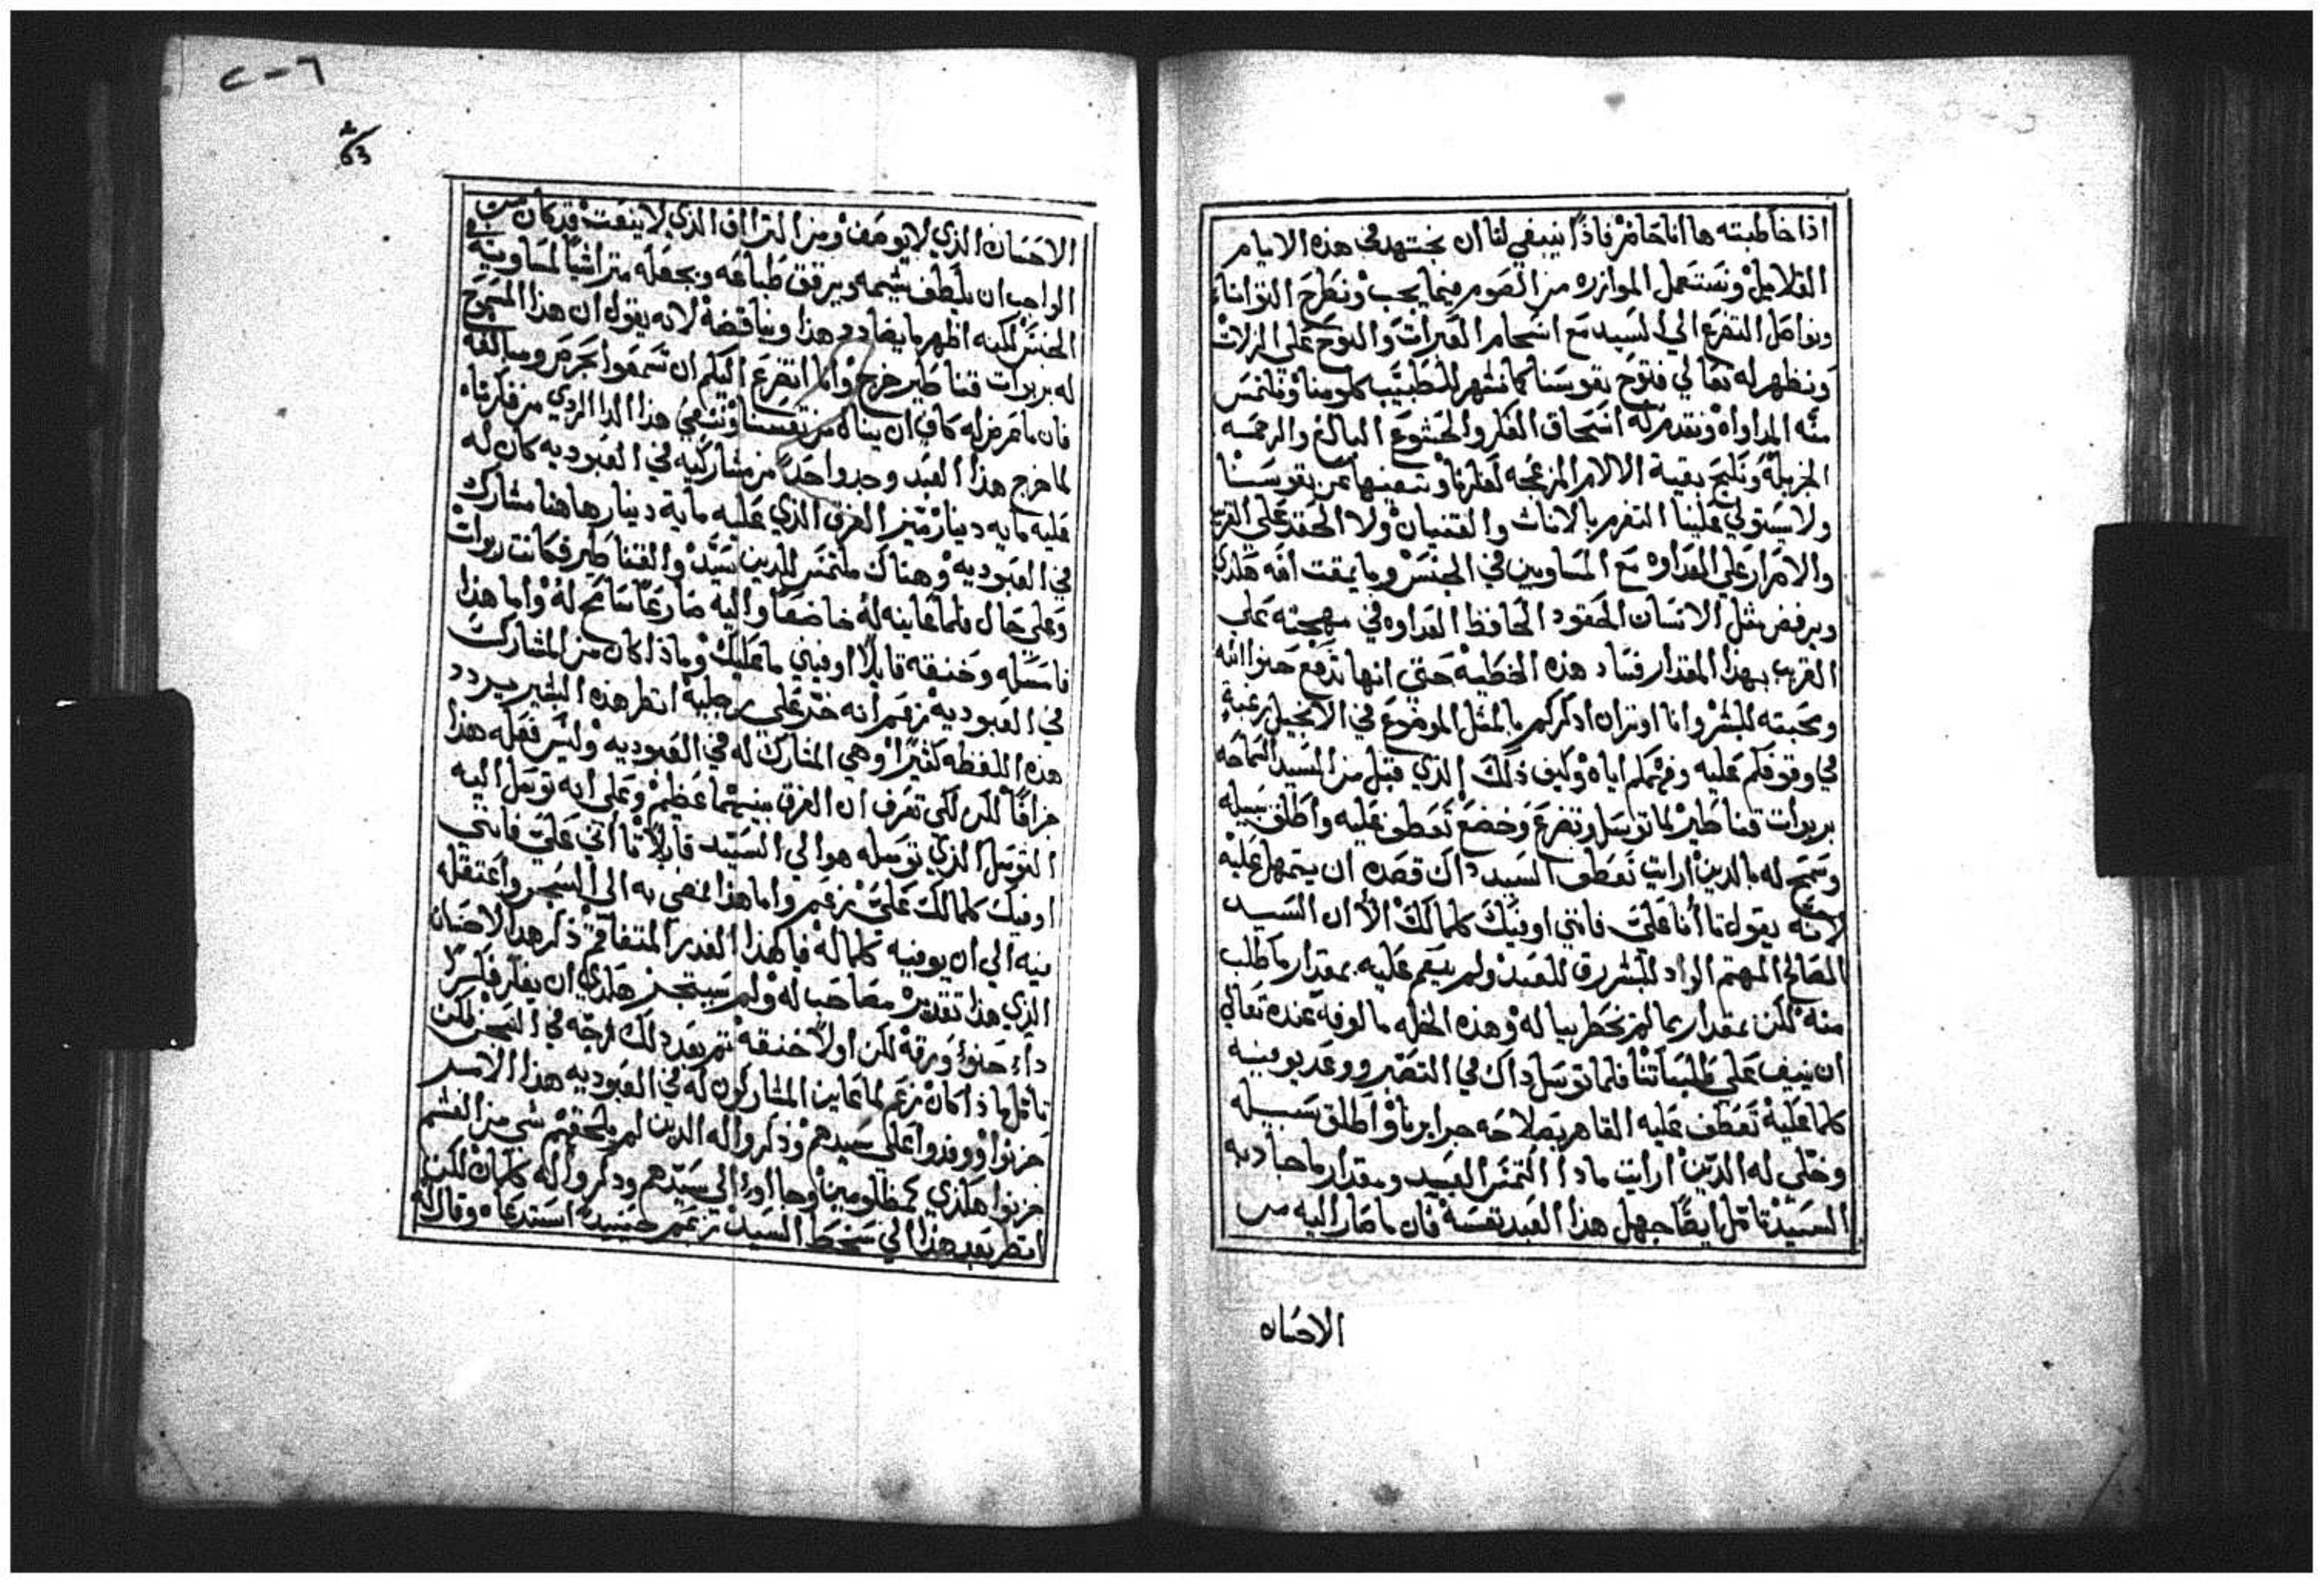 اذا خاطبته ها انا حاضر فاذًا ينبغي لنا ان نجتهد في هذه الايام
القلايل ونستعمل الموازره من الصوم فيما يجب ونطرح التوانا
ونواصل التضرع الي السيد مع اسحام العبرات والنوح علي الزلات
ونظهر له تعالي فتوح نفوسنا كما نشهر للطبيب كلومنا ونلتمس
منه المداواه ونقدم له اسحاق الفكر والخشوع البالغ والرحمه
الجزيله ونليح بقية الالام المزعجه لفكرنا ونبعدها عن نفوسنا
ولا يستولي علينا التغرم بالاناث والقتنيان ولا الحقد علي القريب
والاصرار علي العداوه مع المساويين في الجنس وما يمقت الله هكذي
ويرفض مثل الانسان الحقود الحافظ العداوه في مهجته علي
القريب بهذا المقدار فساد هذه الخطيه حتي انها تدفع حنو الله
ومحبته للبشر وانا اوثر ان اذكركم بالمثل الموضوع في الانجيل رغبةً
في وقوفكم عليه وفهمكم اياه وكيف ذلك الذي قبل من السيد السماحه
بربوات قناطير لما توسل وتضرع وخضع تعطف عليه واطلق سبيله
وسمح له بالدين ارايت تعطف السيد ذاك قصده ان يتمهل عليه
لانه يقول تاانا عليّ فانني اوفيك كلما لك الا ان السيد
الصالح المهتم الواد للبشر رق للعبد ولم ينعم عليه بمقدار ما طلب
منه لكن بمقدار ما لم يخطر بباله وهذه الخله مالوفه عنده تعالي
ان ينيف علي طلباتنا فلما توسل ذاك في التصبر ووعد بوفيه
كلما عليه تعطف عليه القاهر بصلاحه جرايرنا واطلق سبيله
وخلي له الدين ارايت ماذا التمس العبد ومقدار ما جاد به
السيد تامل ايضًا جهل هذا العبد نفسه فان ما صار اليه من
الاحسان
الاحسان الذي لا يوصف ومن التراف الذي لا ينعت قد كان من
الواجب ان يلطف شيمه ويرقق طباعه ويجعله متراثيًا لمساويه في
الجنس لكنه اظهر ما يضادد هذا ويناقضه لانه يقول ان هذا المسموح
له بربوات قناطير خرج وانا اتضرع اليكم ان تسمعوا بحرص ومبالغه
فان ما عرض له كاف ان يناله من نفسنا وننفي هذا الدا الردي من فكرتنا
لما خرج هذا العبد وجد واحدًا من مشاركيه في العبوديه كان له
عليه مايه دينار ميّز الفرق الذي عليه مايه دينار هاهنا مشارك
في العبوديه وهناك ملتمس للدين سيّد والقناطير فكانت ربوات
وعلي حال فلما عاينه له خاضعًا واليه ضارعًا سامح له واما هذا
فامسكه وخنقه قايلًا اوفيني ما عليك وماذا كان من المشارك
في العبوديه زعم انه خر علي رجليه انظر هذه البشير يردد
هذه اللفظه كثيرًا وهي المشارك له في العبوديه وليس فعله هذا
جزافًا لكن لكي تعرف ان الفرق بينهما عظيم وعلي انه توسل اليه
التوسل الذي توسله هو الي السيد قايلًا تااني عليّ فانني
اوفيك كلما لك عليّ زعم واما هذا فمضي به الي السجن واعتقله
فيه الي ان يوفيه كلما له فيا لهذا الغدر المتفاقم ذكر هذا الاحسان
الذي هذا تقديره مصاحب له ولم يستجز هكذي ان يفكر فكرًا
ذا حنو ورقه لكن اولًا خنقه ثم بعد ذلك زجّه في السجن لكن
تامل ماذا كان زعم لما عاين المشاركون له في العبوديه هذا الامر
حزنوا ووفدوا علي سيدهم وذكروا له الدين لم يلحقهم شي من الغشم
حزنوا هكذي كمظلومين وجااوا الي سيّدهم وذكروا له كلما كان لكن
انظر بعد هذا الي سخط السيد زعم حينيدٍ استدعاه وقال له